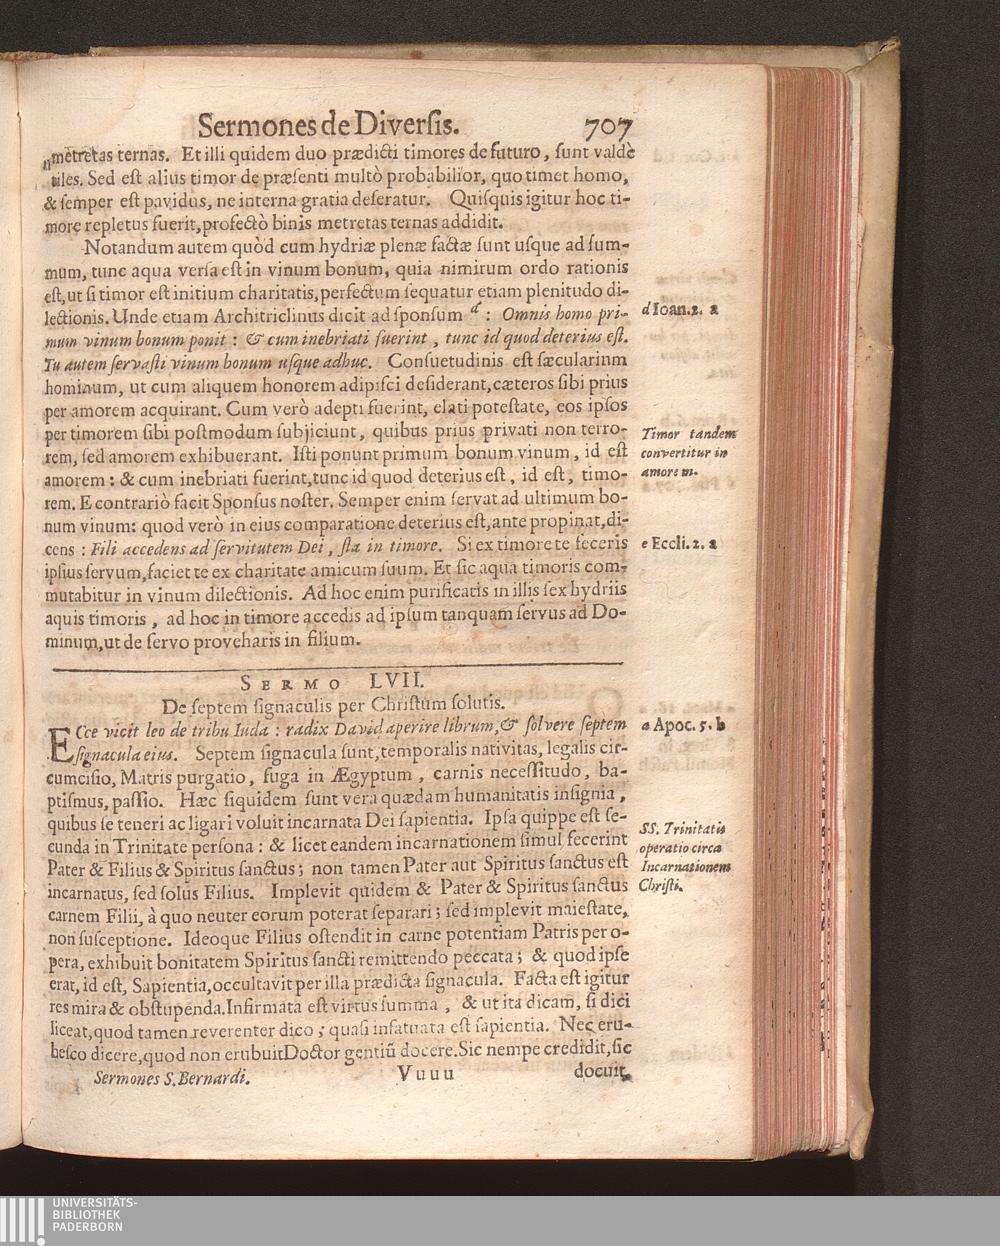 Sermones de Diversis. 707
metretas ternas. Et illi quidem duo prædicti timores de futuro, sunt valdè
utiles. Sed est alius timor de præsenti multò probabilior, quo timet homo,
& semper est pavidus, ne interna gratia deseratur. Quisquis igitur hoc ti-
more repletus fuerit, profectò binis metretas ternas addidit.
Notandum autem quòd cum hydriæ plenæ factæ sunt usque ad sum-
mum, tunc aqua versa est in vinum bonum, quia nimirum ordo rationis
est, ut si timor est initium charitatis, perfectum sequatur etiam plenitudo di-
lectionis. Unde etiam Architriclinus dicit ad sponsum d: Omnis homo pri-
mum vinum bonum ponit: & cum inebriati fuerint, tunc id quod deterius est.
Tu autem servasti vinum bonum usque adhuc. Consuetudinis est sæcularium
hominum, ut cum aliquem honorem adipisci desiderant, cæteros sibi prius
per amorem acquirant. Cum verò adepti fuerint, elati potestate, eos ipsos
per timorem sibi postmodum subjiciunt, quibus prius privati non terro-
rem, sed amorem exhibuerant. Isti ponunt primum bonum vinum, id est
amorem: & cum inebriati fuerint, tunc id quod deterius est, id est, timo-
rem. E contrariò facit Sponsus noster. Semper enim servat ad ultimum bo-
num vinum: quod verò in eius comparatione deterius est, ante propinat, di-
cens: Fili accedens ad servitutem Dei, sta in timore. Si ex timore te feceris
ipsius servum, faciet te ex charitate amicum suum. Et sic aqua timoris com-
mutabitur in vinum dilectionis. Ad hoc enim purificatis in illis sex hydriis
aquis timoris, ad hoc in timore accedis ad ipsum tanquam servus ad Do-
minum, ut de servo proveharis in filium.
d Ioan. 2. a
Timor tandem
convertitur in
amorem.
e Eccli. 2. a
SERMO LVII.
De septem signaculis per Christum solutis.
ECce vicit leo de tribu Iuda: radix David aperire librum, & solvere septem
signacula eius. Septem signacula sunt, temporalis nativitas, legalis cir-
cumcisio, Matris purgatio, fuga in Ægyptum, carnis necessitudo, ba-
ptismus, passio. Hæc siquidem sunt vera quædam humanitatis insignia,
quibus se teneri ac ligari voluit incarnata Dei sapientia. Ipsa quippe est se-
cunda in Trinitate persona: & licet eandem incarnationem simul fecerint
Pater & Filius & Spiritus sanctus; non tamen Pater aut Spiritus sanctus est
incarnatus, sed solus Filius. Implevit quidem & Pater & Spiritus sanctus
carnem Filii, à quo neuter eorum poterat separari; sed implevit maiestate,
non susceptione. Ideoque Filius ostendit in carne potentiam Patris per o-
pera, exhibuit bonitatem Spiritus sancti remittendo peccata; & quod ipse
erat, id est, Sapientia, occultavit per illa prædicta signacula. Facta est igitur
res mira & obstupenda. Infirmata est virtus summa, & ut ita dicam, si dici
liceat, quod tamen reverenter dico; quasi infatuata est sapientia. Nec eru-
besco dicere, quod non erubuit Doctor gentiũ docere. Sic nempe credidit, sic
a Apoc. 5. b
SS. Trinitatis
operatio circa
Incarnationem
Christi.
Sermones S. Bernardi. Vuuu docuit,
UNIVERSITÄTS-
BIBLIOTHEK
PADERBORN